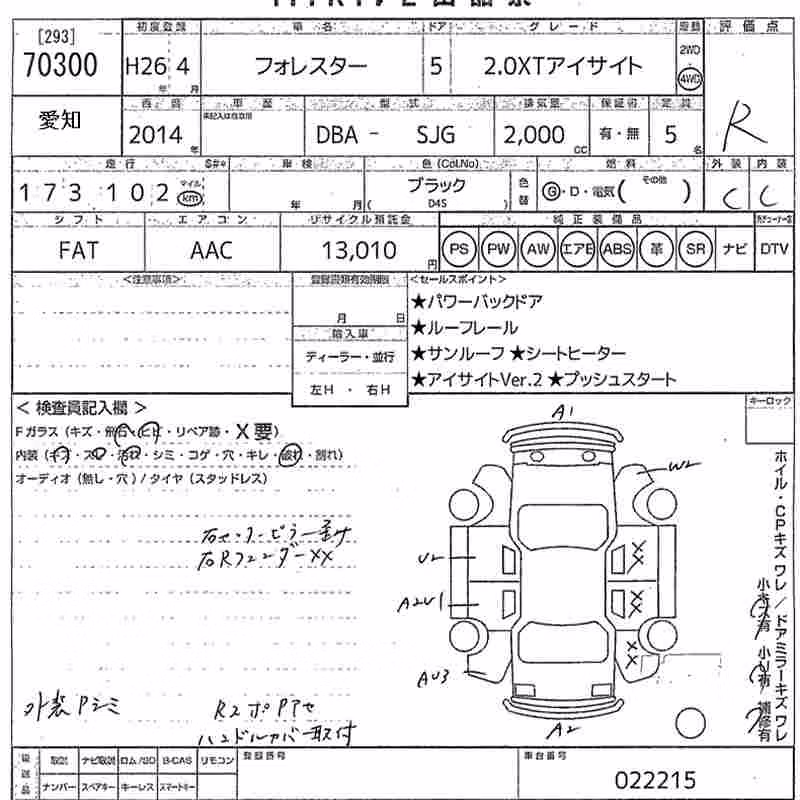 [293]
70300
初度登録
H26年 4月
車名
フォレスター
ドア
5
グレード
2.0XTアイサイト
駆動
2WD
4WD
評価点
R
愛知
西暦
2014年
車歴
未記入は自家用
型式
DBA - SJG
排気量
2,000 CC
保証書
有・無
定員
5名
走行
173 102
マイル
km
S#*
車検
年 月
色(Col.No)
ブラック
( D4S )
色替
燃料
G・D・電気(その他 )
外装
C
内装
C
シフト
FAT
エアコン
AAC
リサイクル預託金
13,010円
純正装備品
PS PW AW エアB ABS 革 SR ナビ DTV
<注意事項>
登録書類有効期限
月 日
輸入車
ディーラー・並行
左H・右H
<セールスポイント>
★パワーバックドア
★ルーフレール
★サンルーフ ★シートヒーター
★アイサイトVer.2 ★プッシュスタート
キーロック
< 検査員記入欄 >
Fガラス (キズ・飛石・ヒビ・リペア跡・X要)
内装 (キズ・スレ・汚れ・シミ・コゲ・穴・キレ・破れ・割れ)
オーディオ (無し・穴) / タイヤ (スタッドレス)
右センターピラー歪み
右Rフェンダー XX
A1
W2
U2
XX
A2U1
XX
AU3
XX
A2
ホイル・CPキズ ワレ / ドアミラーキズ ワレ
小キズ有 小U有 補修有
外装Pシミ
ハンドルカバー取付
後送品
取説 ナビ取説 ロム/SD B-CAS リモコン
ナンバー スペアキー キーレス スマートキー
登録番号
車台番号
022215